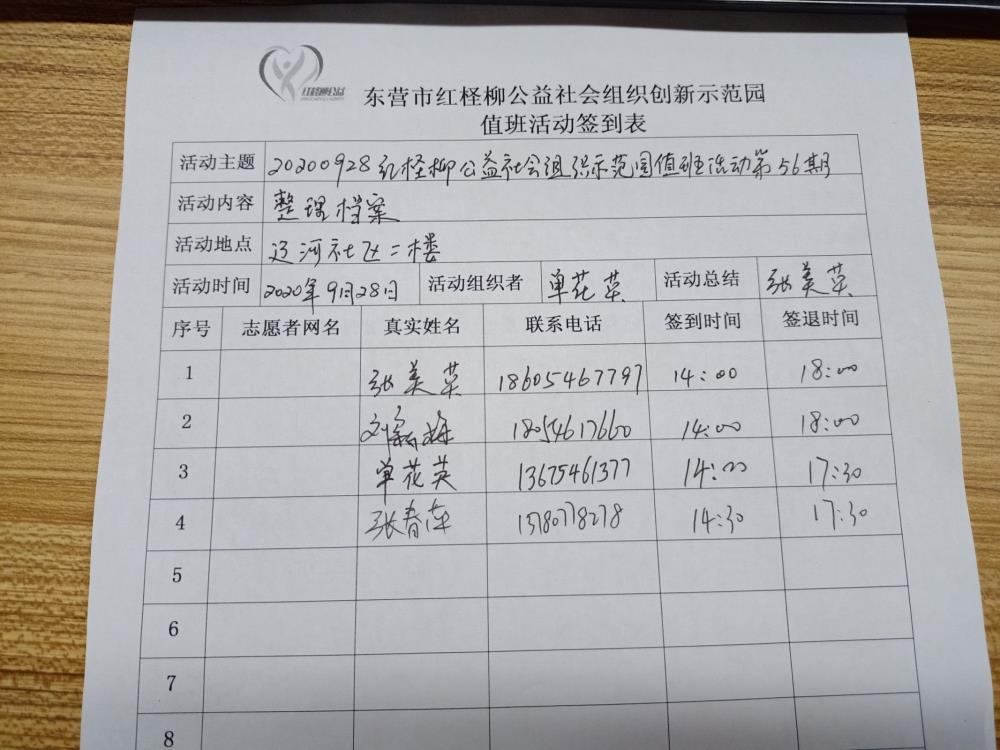 红柽柳公益
东营市红柽柳公益社会组织创新示范园
值班活动签到表
活动主题 20200928红柽柳公益社会组织示范园值班活动第56期
活动内容 整理档案
活动地点 辽河社区二楼
活动时间 2020年9月28日 活动组织者 单花英 活动总结 张美英
序号 志愿者网名 真实姓名 联系电话 签到时间 签退时间
1 张美英 18605467797 14:00 18:00
2 18054617660 14:00 18:00
3 单花英 13675461377 14:00 17:30
4 张春莲 14:30 17:30
5
6
7
8